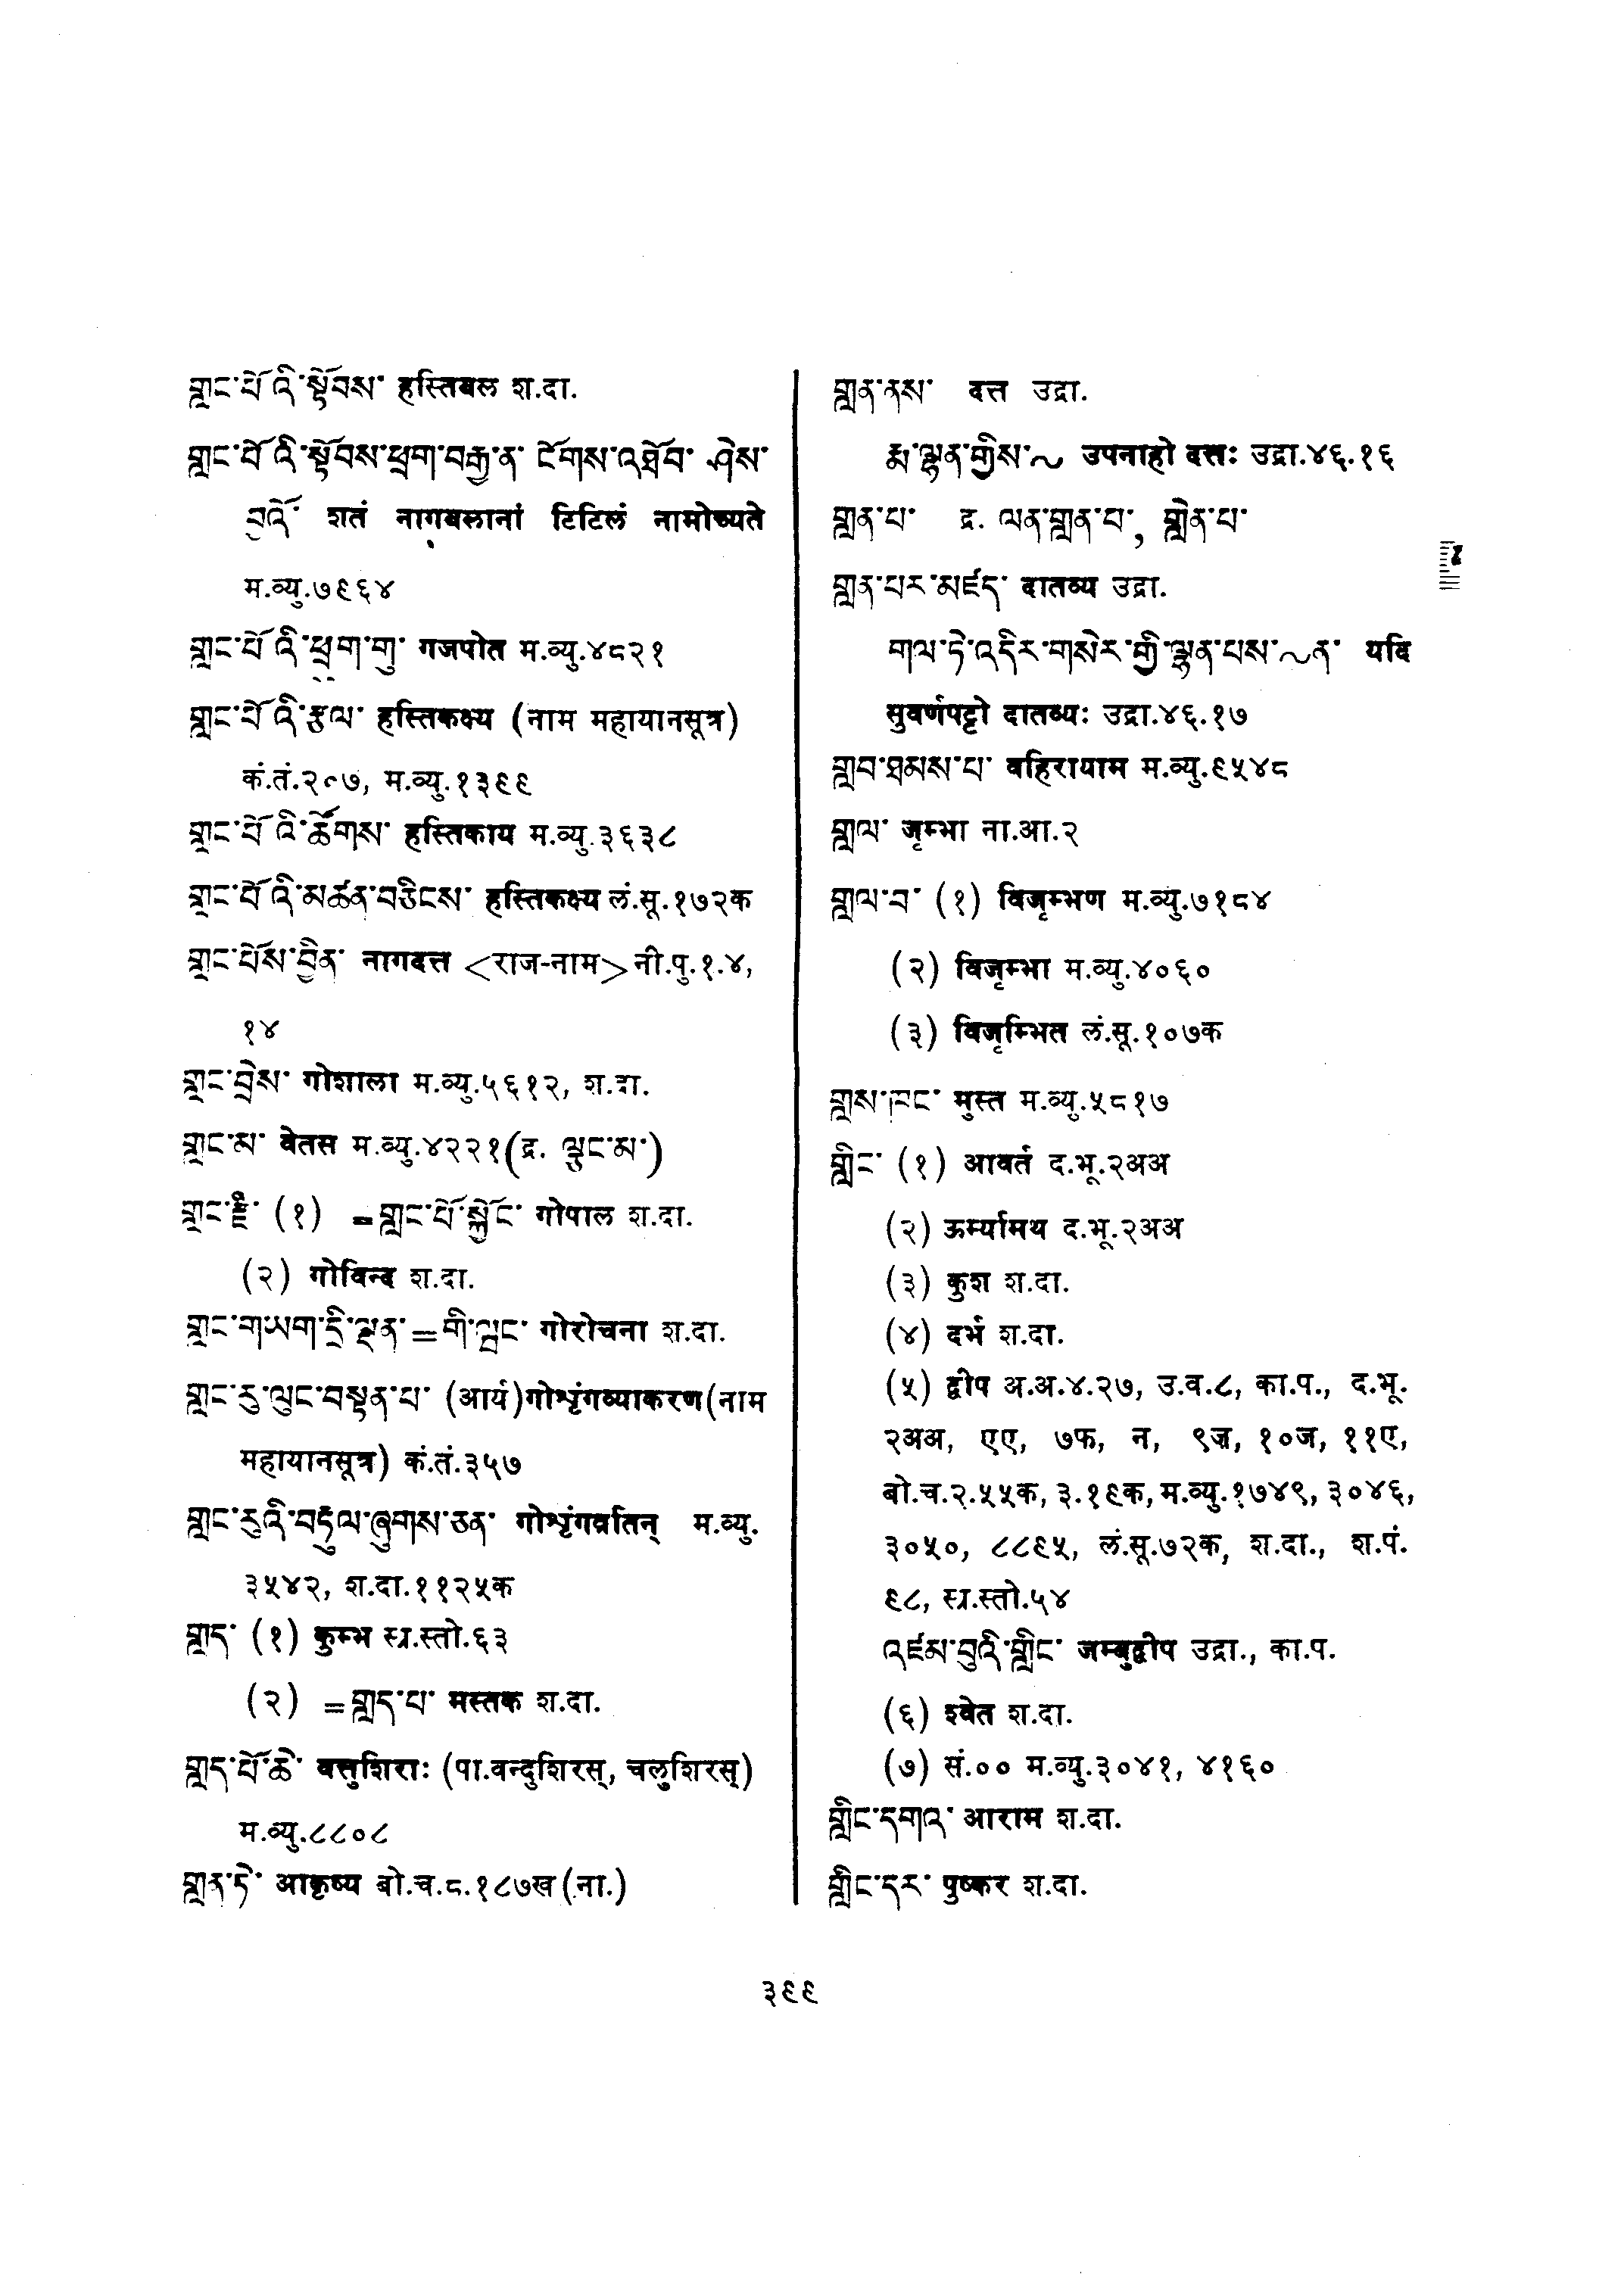 གླང་པོ་འི་སྟོབས་ हस्तिबल श.दा.
གླང་པོ་འི་སྟོབས་ཕྲག་བརྒྱ་ན་ ངོགས་འཐོབ་ ཤེས་
བྱའོ་ शतं नागबलानां टिटिलं नामोच्यते
म.व्यु.७९६४
གླང་པོ་འི་ཕྲུག་གུ་ गजपोत म.व्यु.४८२१
གླང་པོ་འི་རྩལ་ हस्तिकक्ष्य (नाम महायानसूत्र)
कं.तं.२०७, म.व्यु.१३९९
གླང་པོ་འི་ཚོགས་ हस्तिकाय म.व्यु.३६३८
གླང་པོ་འི་མཚན་བཅིངས་ हस्तिकक्ष्य लं.सू.१७२क
གླང་པོས་བྱིན་ नागदत्त <राज-नाम> नी.पु.१.४,
१४
གླང་བྲེས་ गोशाला म.व्यु.५६१२, श.दा.
གླང་མ་ वेतस म.व्यु.४२२१(द्र. ལྕང་མ་)
གླང་རྫི་ (१) =གླང་པོ་སྐྱོང་ गोपाल श.दा.
(२) गोविन्द श.दा.
གླང་གཡག་དྲི་ལྡན་=གི་ཝང་ गोरोचना श.दा.
གླང་རུ་ལུང་བསྟན་པ་ (आर्य)गोशृंगव्याकरण(नाम
महायानसूत्र) कं.तं.३५७
གླང་རུའི་བརྟུལ་ཞུགས་ཅན་ गोशृंगव्रतिन् म.व्यु.
३५४२, श.दा.११२५क
གླད་ (१) कुम्भ स्र.स्तो.६३
(२) =གླད་པ་ मस्तक श.दा.
གླད་པོ་ཆེ་ वसुशिराः (पा.वन्दुशिरस्, चलुशिरस्)
म.व्यु.८८०८
གླན་ཏེ་ आकृष्य बो.च.८.१८७ख(ना.)
གླན་ནས་ दत्त उद्रा.
རྨ་ལྷན་གྱིས་~ उपनाहो दत्तः उद्रा.४६.१६
གླན་པ་ द्र. ལན་གླན་པ་, གླེན་པ་
གླན་པར་མཛད་ दातव्य उद्रा.
གལ་ཏེ་འདིར་གསེར་གྱི་ལྷན་པས་~ན་ यदि
सुवर्णपट्टो दातव्यः उद्रा.४६.१७
གླབ་ཐམས་པ་ बहिरायाम म.व्यु.९५४८
གླལ་ जृम्भा ना.आ.२
གླལ་བ་ (१) विजृम्भण म.व्यु.७१८४
(२) विजृम्भा म.व्यु.४०६०
(३) विजृम्भित लं.सू.१०७क
གླས་ཁང་ मुस्त म.व्यु.५८१७
གླིང་ (१) आवर्त द.भू.२अअ
(२) ऊर्म्यामय द.भू.२अअ
(३) कुश श.दा.
(४) दर्भ श.दा.
(५) द्वीप अ.अ.४.२७, उ.व.८, का.प., द.भू.
२अअ, एए, ७फ, न, ९ज, १०ज, ११ए,
बो.च.२.५५क, ३.१९क, म.व्यु.१७४९, ३०४६,
३०५०, ८८९५, लं.सू.७२क, श.दा., श.पं.
९८, स्र.स्तो.५४
འཛམ་བུའི་གླིང་ जम्बुद्वीप उद्रा., का.प.
(६) श्वेत श.दा.
(७) सं.०० म.व्यु.३०४१, ४१६०
གླིང་དགའ་ आराम श.दा.
གླིང་དར་ पुष्कर श.दा.
३९९